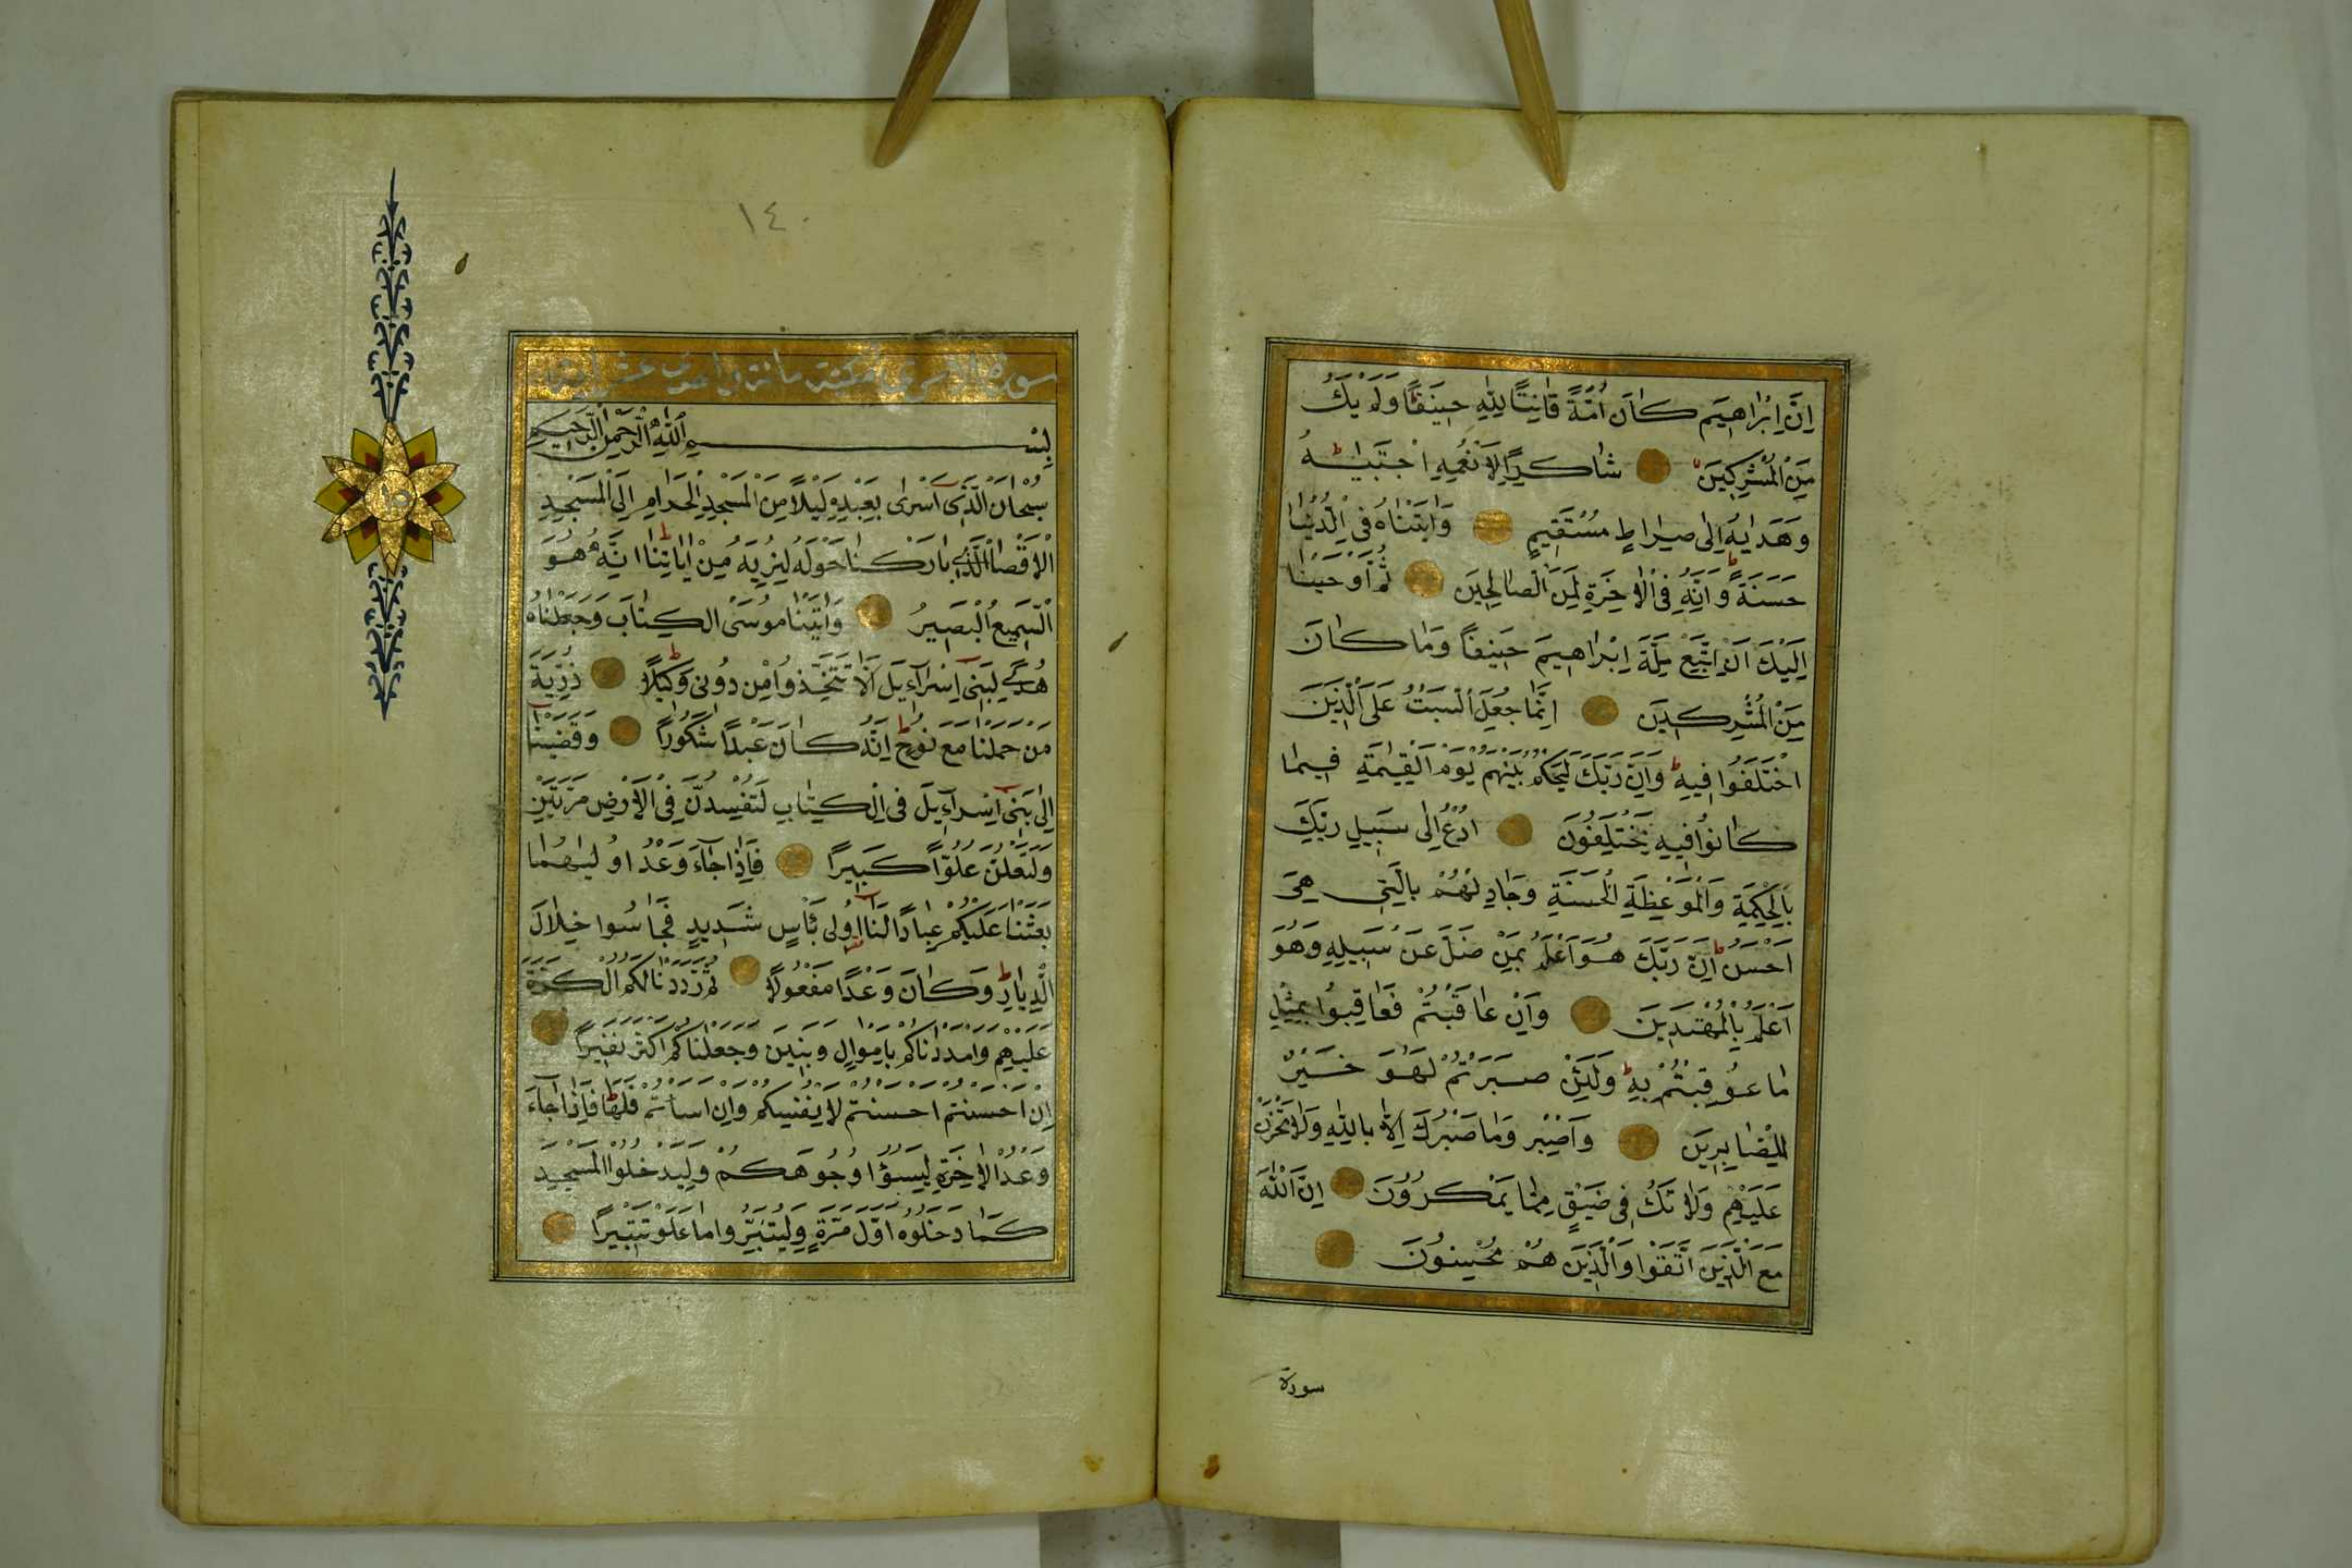 اِنَّ اِبْرٰاهِيمَ كٰانَ اُمَّةً قٰانِتًا لِلّٰهِ حَنِيفًا وَلَمْ يَكُ
مِنَ الْمُشْرِكِينَ شٰاكِرًا لِاَنْعُمِهِ اجْتَبٰيهُ
وَهَدٰيهُ اِلٰى صِرٰاطٍ مُسْتَقِيمٍ وَاٰتَيْنٰاهُ فِى الدُّنْيٰا
حَسَنَةً وَاِنَّهُ فِى الْاٰخِرَةِ لَمِنَ الصّٰالِحِينَ ثُمَّ اَوْحَيْنٰا
اِلَيْكَ اَنِ اتَّبِعْ مِلَّةَ اِبْرٰاهِيمَ حَنِيفًا وَمٰا كٰانَ
مِنَ الْمُشْرِكِينَ اِنَّمٰا جُعِلَ السَّبْتُ عَلَى الَّذِينَ
اخْتَلَفُوا فِيهِ وَاِنَّ رَبَّكَ لَيَحْكُمُ بَيْنَهُمْ يَوْمَ الْقِيٰمَةِ فِيمٰا
كٰانُوا فِيهِ يَخْتَلِفُونَ اُدْعُ اِلٰى سَبِيلِ رَبِّكَ
بِالْحِكْمَةِ وَالْمَوْعِظَةِ الْحَسَنَةِ وَجَادِلْهُمْ بِالَّتِى هِىَ
اَحْسَنُ اِنَّ رَبَّكَ هُوَ اَعْلَمُ بِمَنْ ضَلَّ عَنْ سَبِيلِهِ وَهُوَ
اَعْلَمُ بِالْمُهْتَدِينَ وَاِنْ عٰاقَبْتُمْ فَعٰاقِبُوا بِمِثْلِ
مٰا عُوقِبْتُمْ بِهِ وَلَئِنْ صَبَرْتُمْ لَهُوَ خَيْرٌ
لِلصّٰابِرِينَ وَاصْبِرْ وَمٰا صَبْرُكَ اِلّٰا بِاللّٰهِ وَلٰا تَحْزَنْ
عَلَيْهِمْ وَلٰا تَكُ فِى ضَيْقٍ مِمّٰا يَمْكُرُونَ اِنَّ اللّٰهَ
مَعَ الَّذِينَ اتَّقَوْا وَالَّذِينَ هُمْ مُحْسِنُونَ
سورة
١٤٠
سورة الاسرى مكية مائة واحدى عشر اية
بِسْمِ اللّٰهِ الرَّحْمٰنِ الرَّحِيمِ
سُبْحٰانَ الَّذِى اَسْرٰى بِعَبْدِهِ لَيْلًا مِنَ الْمَسْجِدِ الْحَرٰامِ اِلَى الْمَسْجِدِ
الْاَقْصَا الَّذِى بٰارَكْنٰا حَوْلَهُ لِنُرِيَهُ مِنْ اٰيٰاتِنٰا اِنَّهُ هُوَ
السَّمِيعُ الْبَصِيرُ وَاٰتَيْنٰا مُوسَى الْكِتٰابَ وَجَعَلْنٰاهُ
هُدًى لِبَنِى اِسْرٰآءِيلَ اَلّٰا تَتَّخِذُوا مِنْ دُونِى وَكِيلًا ذُرِّيَّةَ
مَنْ حَمَلْنٰا مَعَ نُوحٍ اِنَّهُ كٰانَ عَبْدًا شَكُورًا وَقَضَيْنٰا
اِلٰى بَنِى اِسْرٰآءِيلَ فِى الْكِتٰابِ لَتُفْسِدُنَّ فِى الْاَرْضِ مَرَّتَيْنِ
وَلَتَعْلُنَّ عُلُوًّا كَبِيرًا فَاِذٰا جٰآءَ وَعْدُ اُولٰيهُمٰا
بَعَثْنٰا عَلَيْكُمْ عِبٰادًا لَنٰا اُولِى بَاْسٍ شَدِيدٍ فَجٰاسُوا خِلٰالَ
الدِّيٰارِ وَكٰانَ وَعْدًا مَفْعُولًا ثُمَّ رَدَدْنٰا لَكُمُ الْكَرَّةَ
عَلَيْهِمْ وَاَمْدَدْنٰاكُمْ بِاَمْوٰالٍ وَبَنِينَ وَجَعَلْنٰاكُمْ اَكْثَرَ نَفِيرًا
اِنْ اَحْسَنْتُمْ اَحْسَنْتُمْ لِاَنْفُسِكُمْ وَاِنْ اَسَاْتُمْ فَلَهٰا فَاِذٰا جٰآءَ
وَعْدُ الْاٰخِرَةِ لِيَسُوؤُا وُجُوهَكُمْ وَلِيَدْخُلُوا الْمَسْجِدَ
كَمٰا دَخَلُوهُ اَوَّلَ مَرَّةٍ وَلِيُتَبِّرُوا مٰا عَلَوْا تَتْبِيرًا
١٥